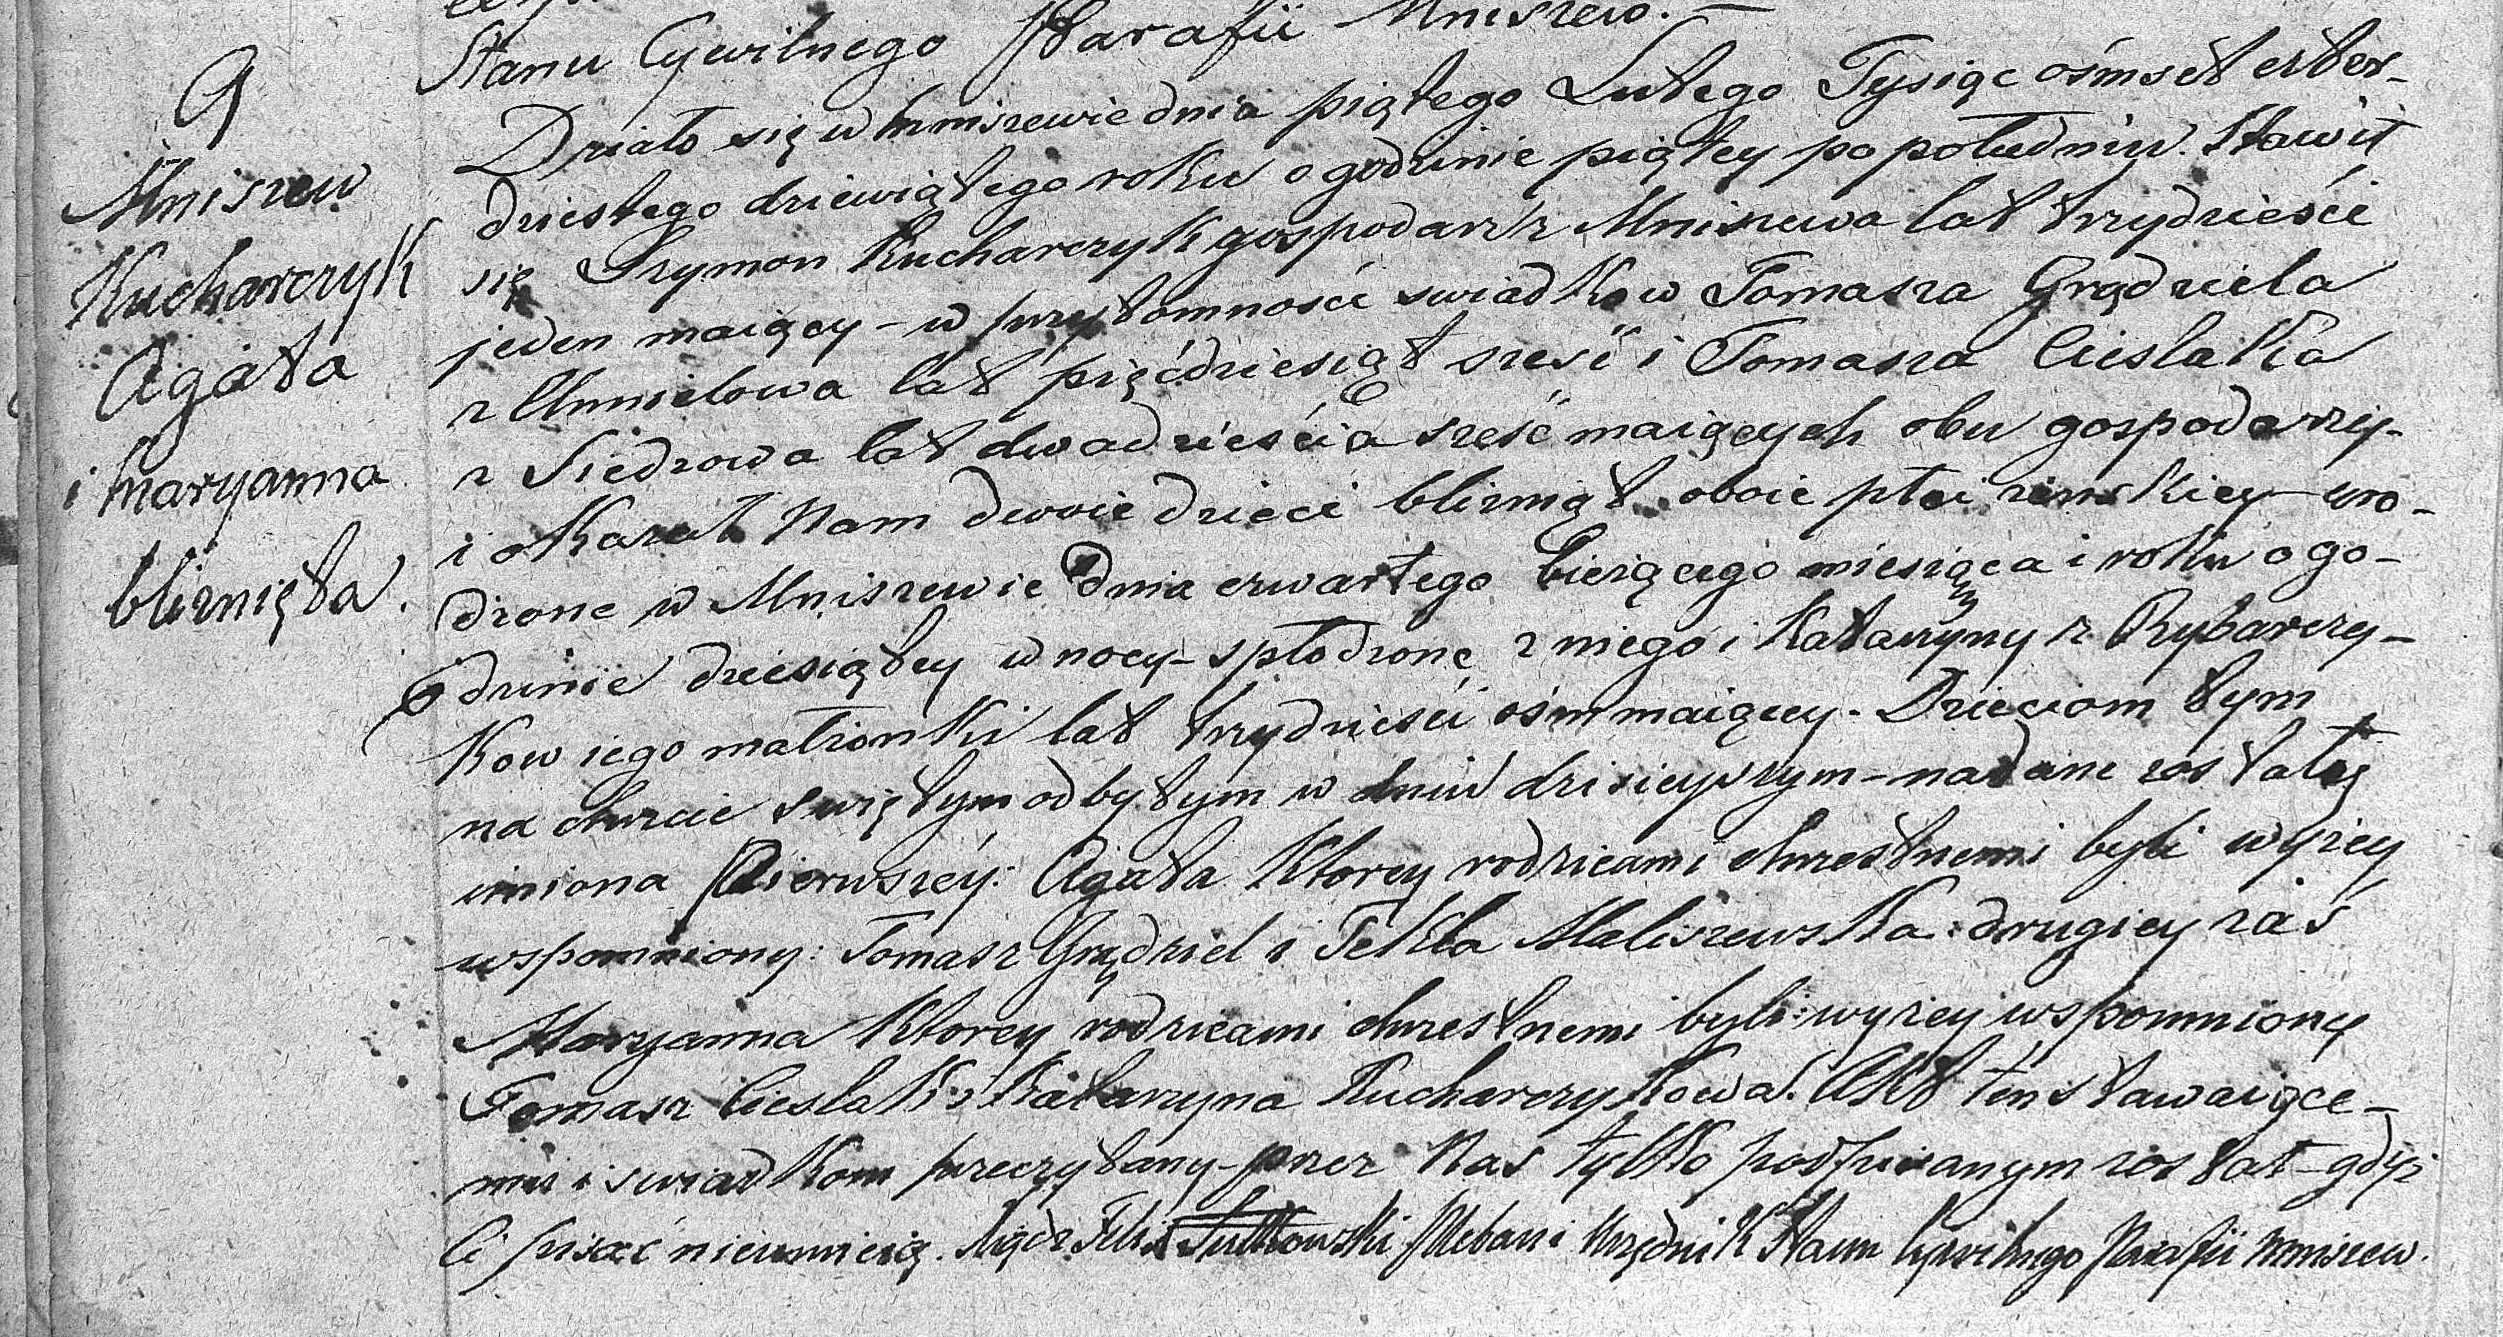 Stanu Cywilnego Parafii Mniszew. —
9
Mniszew
Kucharczyk
Agata
i Maryanna
bliznięta.
Działo się w Mniszewie dnia piątego Lutego Tysiąc ośmset czter-
dziestego dziewiątego roku o godzinie piątey po południu. Stawił
się Szymon Kucharczyk gospodarz z Mniszewa lat trzydzieści
jeden maiący – w przytomności swiadkow Tomasza Grądziela
z Chmielowa lat pięćdziesiąt sześć i Tomasza Cieslaka
z Siedzowa lat dwadzieścia sześć maiących obu gospodarzy-
i okazał Nam dwoie dzieci bliźniąt oboie płci zenskiey – uro-
dzone w Mniszewie dnia czwartego bieżącego miesiąca i roku o go-
dzinie dziesiątey w nocy – spłodzone z niego i Katarzyny z Rybarczy-
kow iego małżonki lat trzydzieści ośm maiącey. Dzieciom tym
na chrzcie swiętym odbytym w dniu dzisieyszym – nadane zostały
imiona Pierwszéy: Agata Ktorey rodzicami chrzestnemi byli wyżey
wspomniony: Tomasz Grądziel i Tekla Maliszewska: drugiey zaś
Maryanna Ktorey rodzicami chrzestnemi byli: wyżey wspomniony
Tomasz Cieslak i Katarzyna Kucharczykowa. Akt ten stawaiące-
mu i swiadkom przeczytany – przez Nas tylko podpisanym został – gdyż
ci pisać nieumieią. Xiądz Felix Sutkowski Pleban i Urzędnik Stanu Cywilnego Parafii Mniszew.